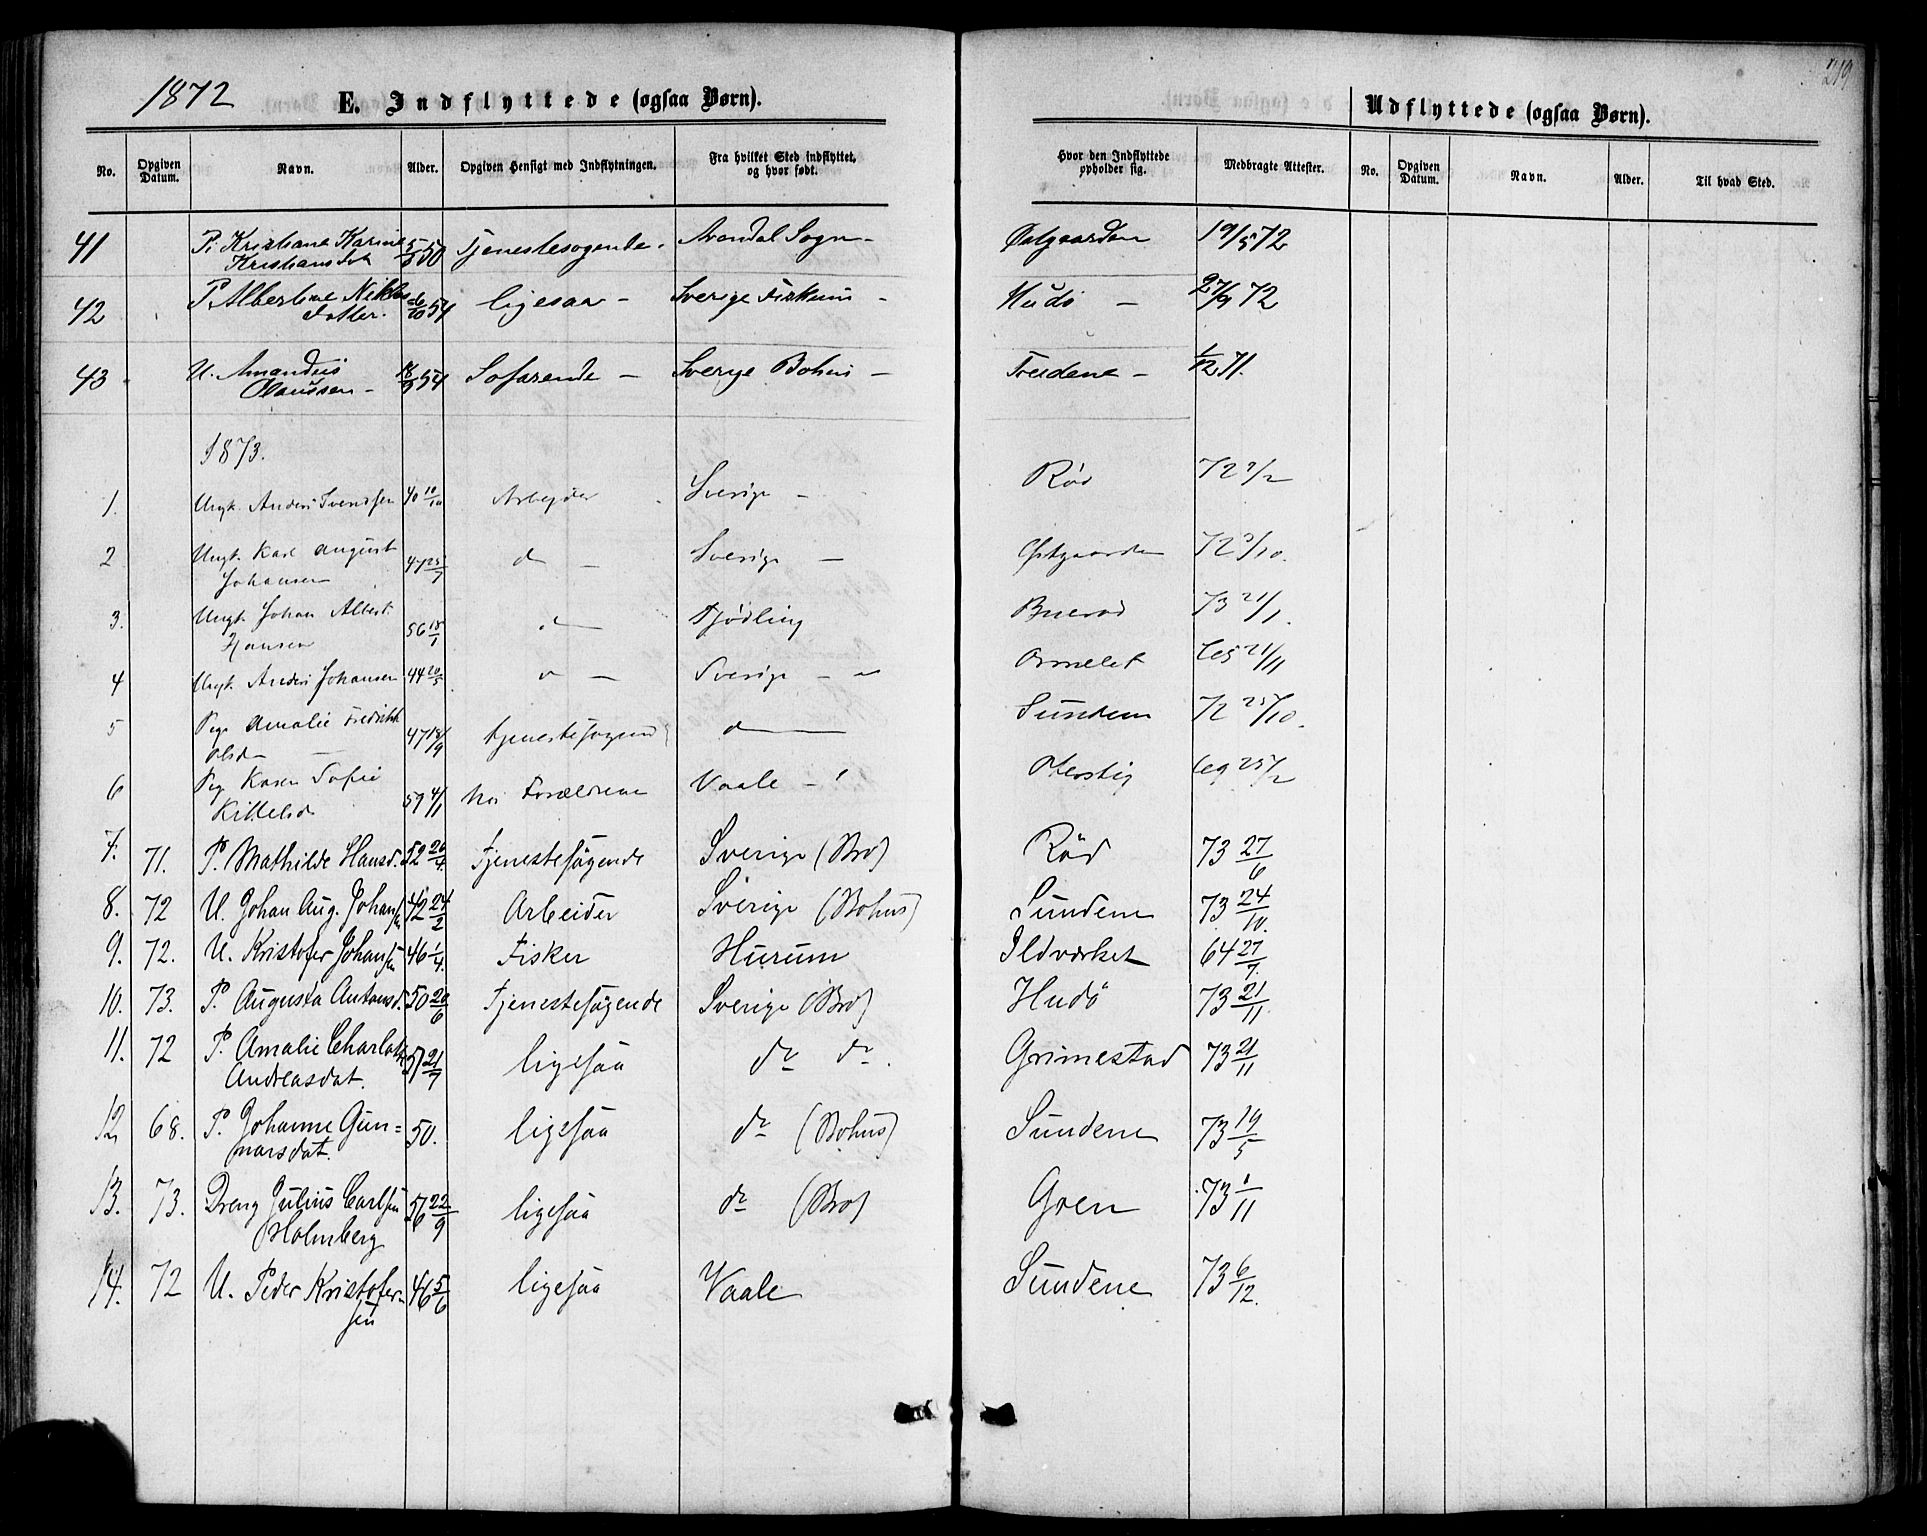 219
1872 E. Indflyttede (ogsaa Børn). Udflyttede (ogsaa Børn).
No. Opgiven Datum. Navn. Alder. Opgiven Hensigt med Indflytningen. Fra hvilket Sted indflyttet, og hvor født. Hvor den Indflyttede opholder sig. Medbragte Attester. No. Opgiven Datum. Navn. Alder. Til hvad Sted.
41 P. Kristiane Karine 50 Tjenestesøgende. Sogn 19/5 72
Kristiansdat
42 P. Albertine 54 ligesaa - Sverige Hudö - 27/9 72
Datter.
43 U. Amandus 54 Sofarende - Sverige Bohus - 1/12 71.
Olaussen -
1873.
1. Ungk. Anders Svendsen 40 10/10 Arbejder Sverige - Röd 72 7/2
2 Ungk. Karl August 47 25/7 d - Sverige - Østgaarden 72 3/10.
Johansen
3. Ungk. Johan Albert 56 18/1 d Tjødling Buerød 73 21/1.
Hansen
4 Ungk. Anders Johansen 44 20/5 " - Sverige - Ormelet 65 21/11
5 Pige Amalie Fredrikke 47 18/9 tjenestesøgend d Sundene 72 25/10.
Olsd -
6 Pige Karen Sofie 59 4/1 hos Forældrene Vaale - 69 25/2
Kittelsd
7. 71. P. Mathilde Hansd. 52 20/4. Tjenestesøgende Sverige (Bro) Röd 73 27/6
8. 72 U. Johan Aug. Johansen 42 24/2 Arbeider Sverige (Bohus) Sundene 73 24/10.
9. 72. U. Kristofer Johansen 46 1/4. Fisker Hurum Ildværket 64 27/7.
10. 73. P. Augusta Antonsd. 50 20/6 Tjenestesøgende Sverige (Bro) Hudö 73 21/11.
11. 72 P. Amalie Charlotte 51 21/7 ligesaa do do. Grimestad 73 21/11
Andreasdat.
12. 68. P. Johanne Gun= 50. ligesaa do (Bohus) Sundene 73 19/5
narsdat.
13. 73. Dreng Julius Carlsen 56 22/9 ligesaa do (Bro) Gren 73 1/11
Holmberg
14. 72 U. Peder Kristofer- 46 5/6 ligesaa Vaale Sundene 73 6/12.
sen